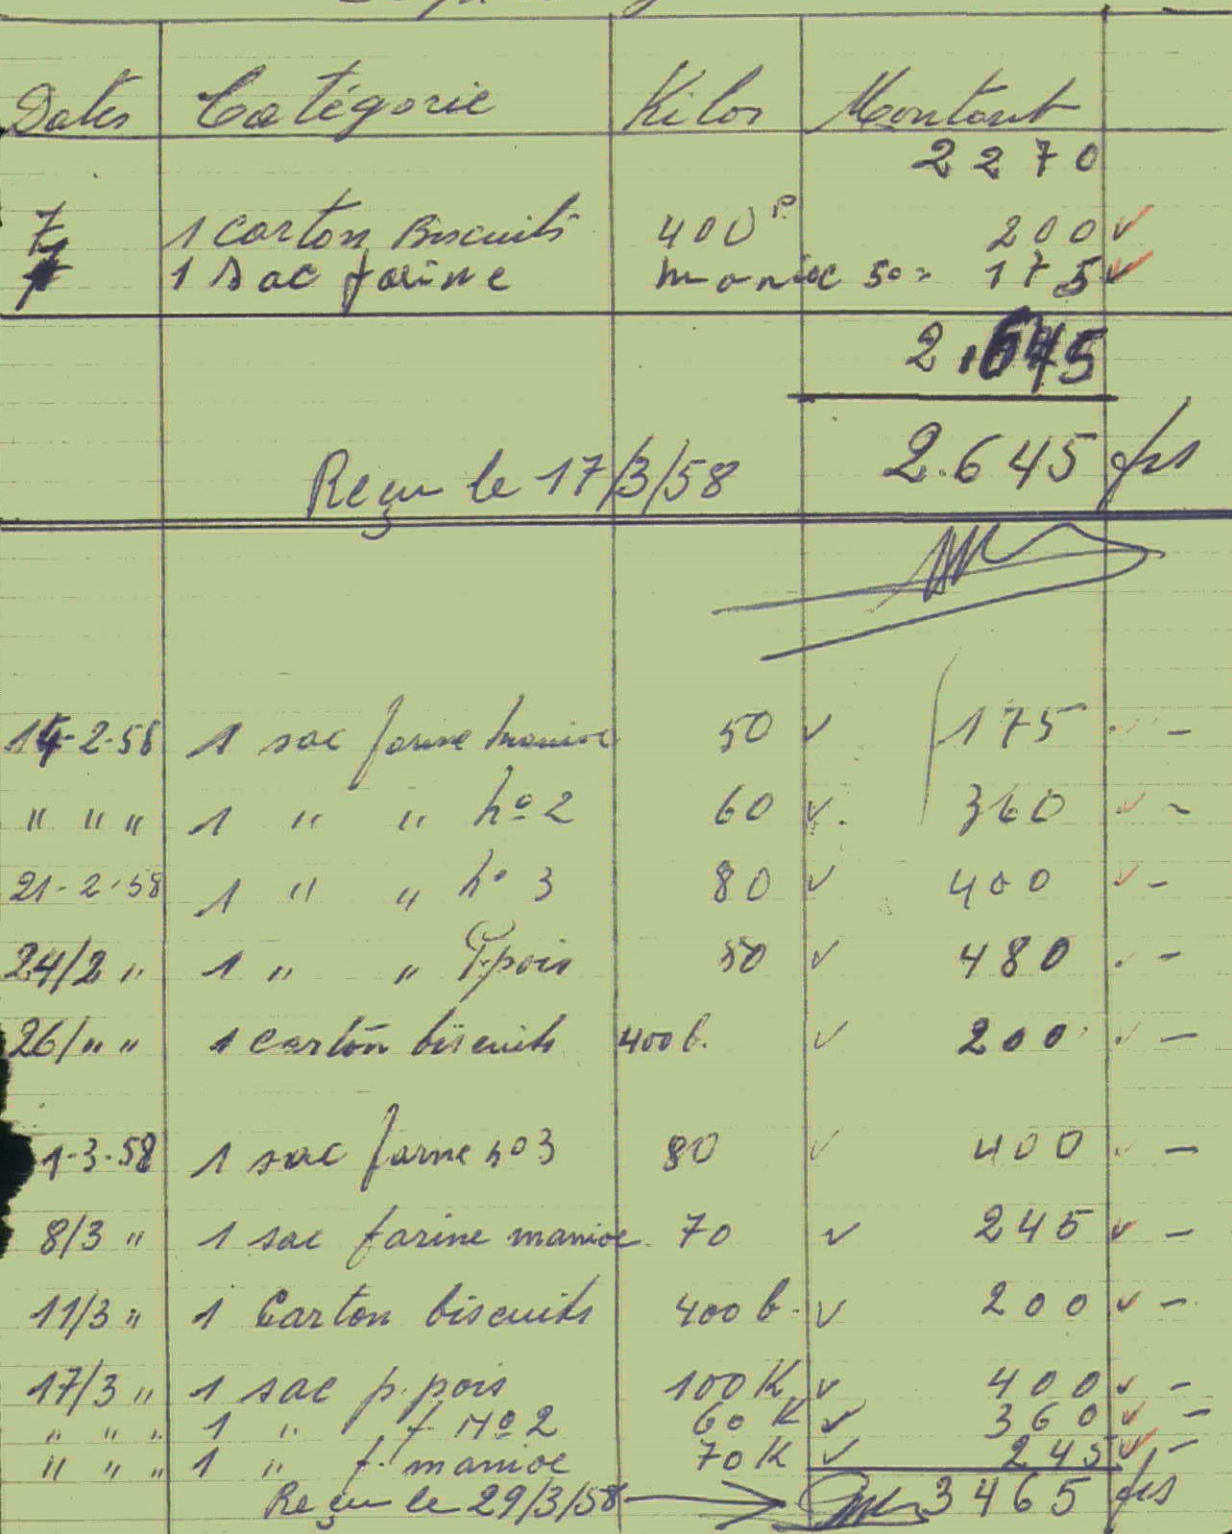 Dates Catégorie Kilos Montant
2270
7 1 Carton Biscuits 400 P 200 ✓
1 Sac farine manioc 50 = 175 ✓
2.645
Reçu le 17/3/58 2.645 frs
14-2-58 1 sac farine manioc 50 ✓ 175 -
" " " 1 " " no 2 60 ✓ 360 ✓ -
21-2-58 1 " " no 3 80 ✓ 400 ✓ -
24/2 " 1 " " P.pois 50 ✓ 480 -
26/" " 1 carton biscuits 400 b. ✓ 200 ✓ -
1-3-58 1 sac farine no 3 80 ✓ 400 -
8/3 " 1 sac farine manioc 70 ✓ 245 ✓ -
11/3 " 1 Carton biscuits 400 b. ✓ 200 ✓ -
17/3 " 1 sac p.pois 100 K ✓ 400 ✓ -
" " " 1 " f No 2 60 K ✓ 360 ✓ -
" " " 1 " f. manioc 70 K ✓ 245 ✓ -
Reçu le 29/3/58 → 3465 frs